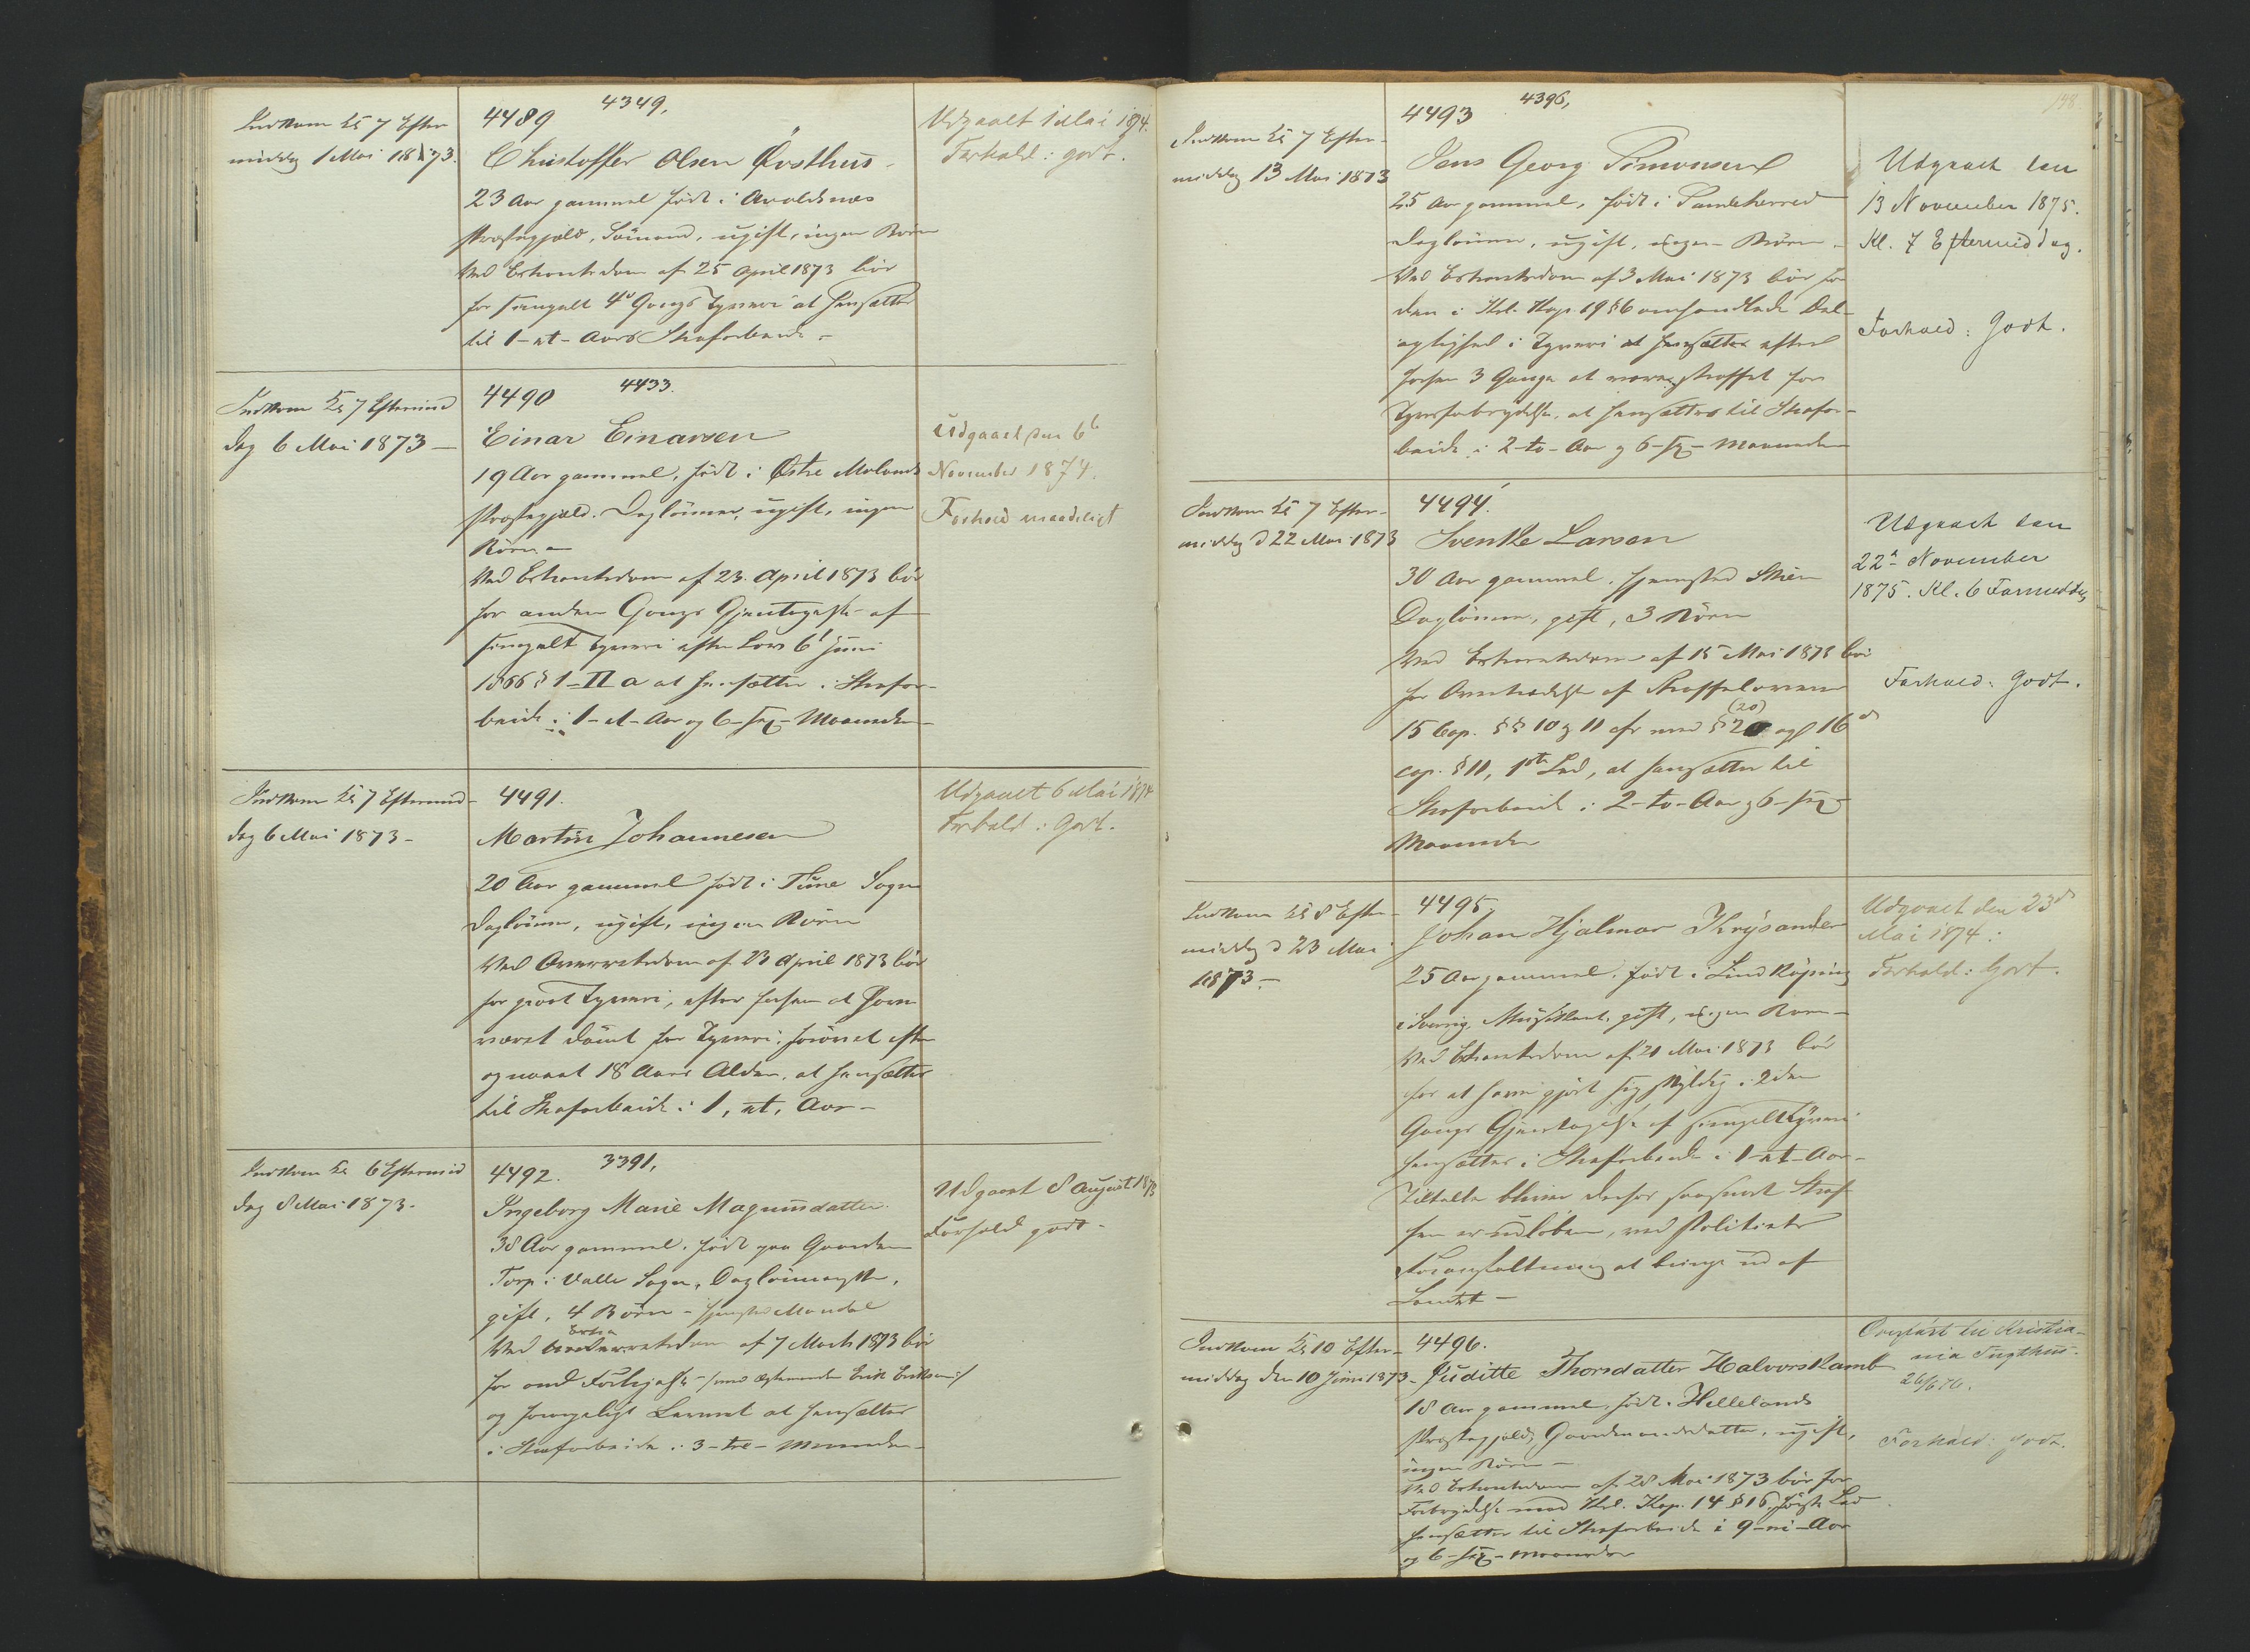 Indkom Kl 7 Efter
middag 1 Mai 1873.
4489
4349,
Christoffer Olsen Øvsthus
23 Aar gammel født i Avaldsnæs
Præstegjæld, Sömand, ugift, ingen Börn
Ved Extraretsdom af 25 April 1873 bör
for simpelt 4de Gangs Tyveri at hensættes
til 1-et-Aars Strafarbeide.
Udgaaet 1 Mai 1874.
Forhold: godt.
Indkom Kl 7 Eftermid
dag 6 Mai 1873 —
4490
4433.
Einar Einarsen
19 Aar gammel, född i Østre Molands
Præstegjæld. Daglönner, ugift, ingen
Börn —
Ved Extraretsdom af 23. April 1873 bör
for anden Gangs Gjentagelse af
simpelt Tyveri efter Lov 6t Juni
1866 § 1-II a at hensættes i Strafar-
beide i 1-et-Aar og 6-sex-Maaneder
Udgaaet den 6te
November 1874.
Forhold maadeligt
Indkom Kl 7 Eftermid-
dag 6 Mai 1873 -
4491.
Martin Johannesen
20 Aar gammel född i Tune Sogn
Daglönner, ugift, ingen Börn
Ved Overretsdom af 23 April 1873 bör
for grovt Tyveri, efter forhen at have
været dömt for Tyveri, forövet efter
opnaaet 18 Aars Alder, at hensættes
til Strafarbeide i 1, et, Aar -
Udgaaet 6 Mai 1874
Forhold: Godt.
Indkom Kl 6 Eftermid
dag 8 Mai 1873.
4492.
3391,
Ingeborg Marie Magnusdatter
38 Aar gammel, född paa Gaarden
Torp i Valle Sogn, Daglönnerske,
gift, 4 Börn - Hjemsted Mandal
Extra
Ved retsdom af 7 Marts 1873 bör
for ond Forligelse (med Ægtemanden Erik Eriksen)
og Levnet at hensættes
i Strafarbeide i 3-tre-Maaneder
Udgaaet 8 August 1873
Forhold godt -
148
Indkom Kl 7 Efter-
middag 13 Mai 1873
4493
4396,
Jens Georg Simonsen
25 Aar gammel, född i Bambleherred
Daglönner, ugift, ingen Börn -
Ved Extraretsdom af 3 Mai 1873 bör for
den i Krl. Kap 19 § 6 omhandlede Del-
agtighed i Tyveri at hensættes efter
forhen 3 Gange at være straffet for
Tyvsforbrydelse, at hensættes til Strafar-
beide i 2-to-Aar og 6-sex-Maaneder
Udgaaet den
13 November 1875.
Kl. 7 Eftermiddag.
Forhold: Godt.
Indkom Kl 7 Efter-
middag d 22 Mai 1873
4494.
Svenke Larsen
30 Aar gammel. Hjemsted Skien
Daglönner, gift, 3 Börn
Ved Extraretsdom af 15 Mai 1873 bör
for Overtrædelse af Straffelovens
(20)
15 Cap. §§ 10 og 11 cfr med § 20 og 16d
cap. § 11, 1ste Led, at hensættes til
Strafarbeide i 2-to-Aar og 6-sex-
Maaneder
Udgaaet den
22d November
1875. Kl. 6 Formiddag
Forhold: Godt.
Indkom Kl 8 Efter-
middag d 23 Mai
1873 -
4495,
Johan Hjalmar Krysander
25 Aar gammel, född i Lindköping
i Sverig, Musikant, gift, ingen Börn -
Ved Extraretsdom af 21 Mai 1873 bör
for at have gjort sig skyldig i 2den
Gangs Gjentagelse af simpelt Tyveri
hensættes i Strafarbeide i 1-et-Aar -
Tiltalte bliver derhos saasnart Straf-
fen er udløben, ved Politiets
Foranstaltning at bringe ud af
Landet —
Udgaaet den 23d
Mai 1874:
Forhold: Godt.
Indkom Kl 10 Efter-
middag den 10 Juni 1873 -
4496.
Juditte Thorsdatter Halvorskamb
18 Aar gammel, född i Hellelands
Præstegjæld, Gaardmandsdatter, ugift,
ingen Börn —
Ved Extraretsdom af 28 Mai 1873 bör for
Forbrydelse mod Krl. Kap. 14 § 16, første Led
hensættes til Strafarbeide i 9-ni-Aar
og 6-sex-Maaneder
Overført til Kristia-
nia Tugthus.
26/6 76.
Forhold: godt.